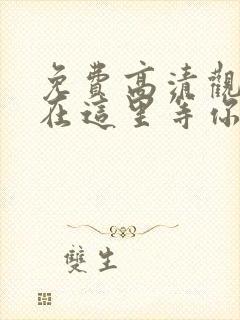 免費高清觀
在這里等你
雙生